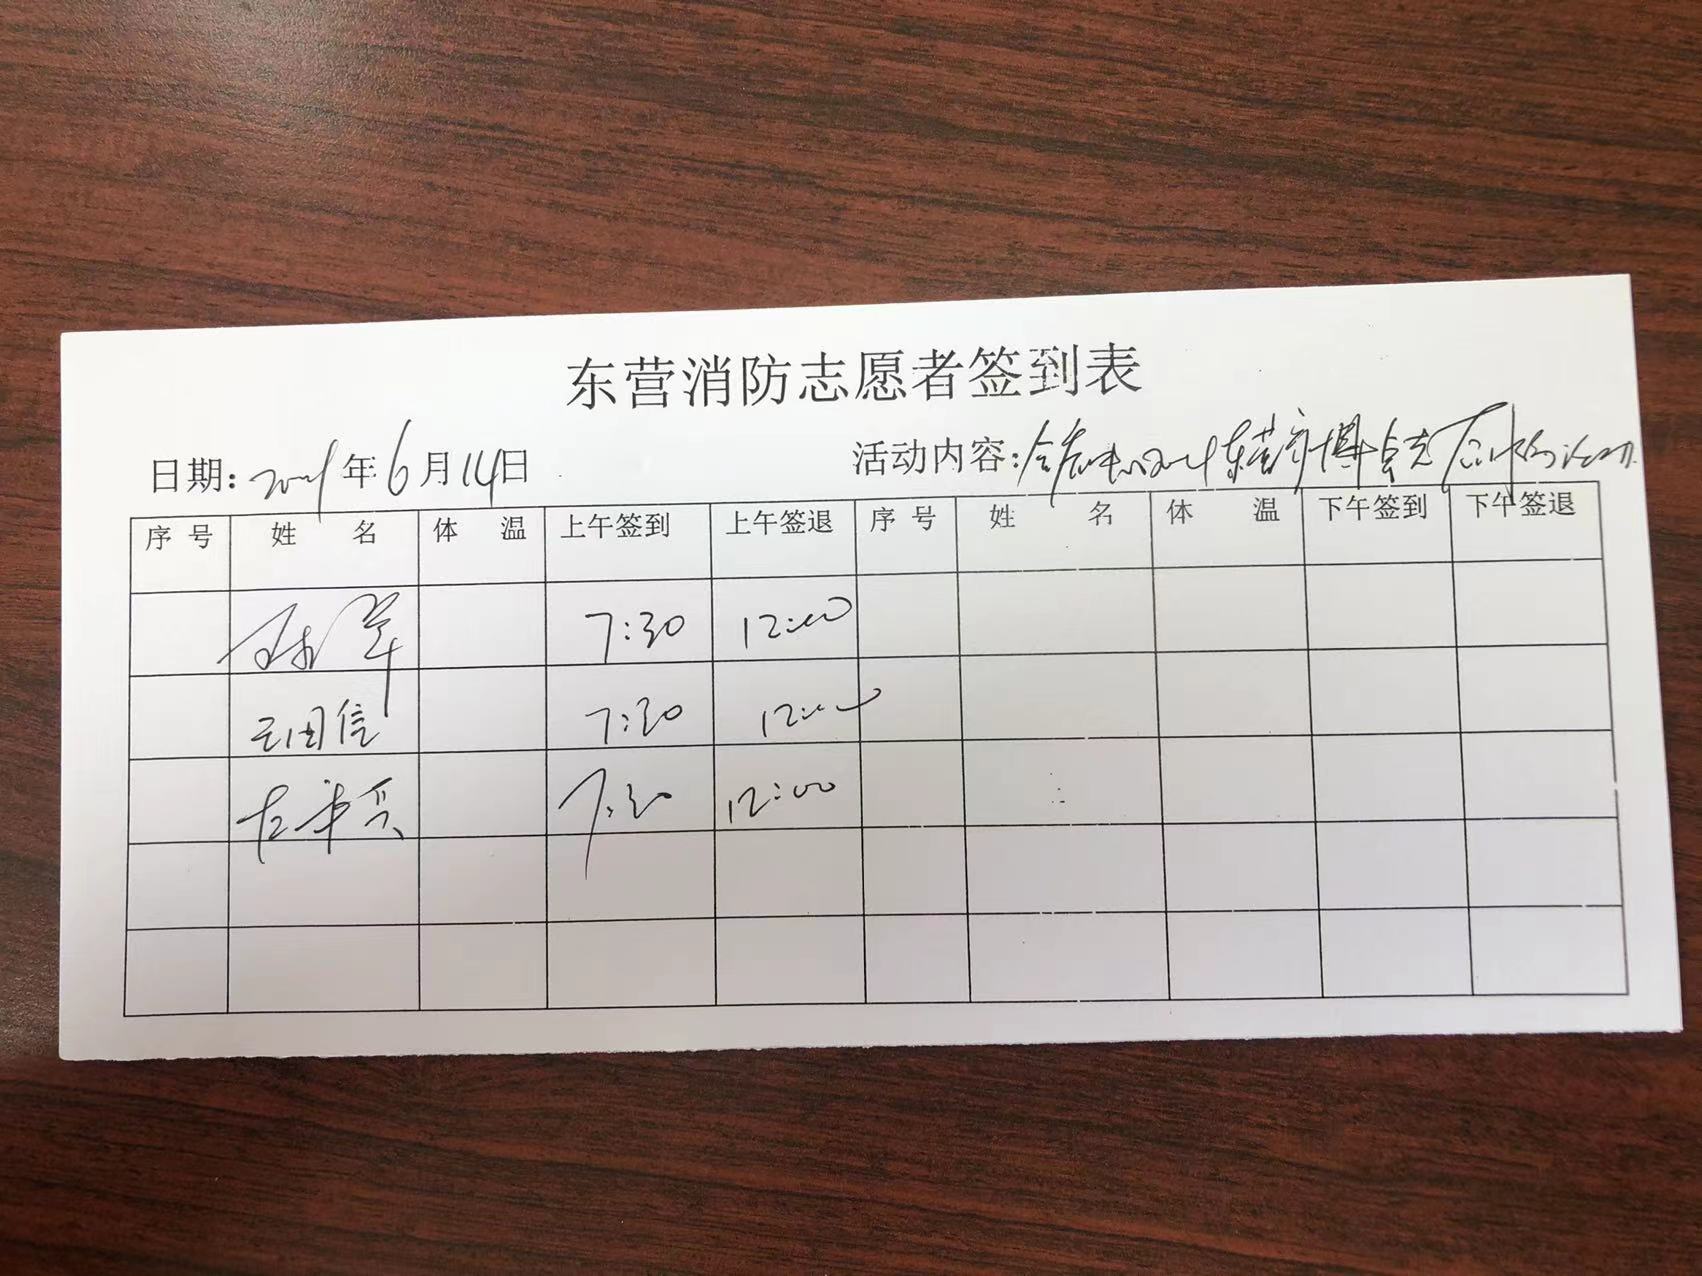 东营消防志愿者签到表
日期: 2021年6月14日 活动内容: 东营市
序号 姓名 体温 上午签到 上午签退 序号 姓名 体温 下午签到 下午签退
7:30 12:00
王国信 7:30 12:00
7:30 12:00